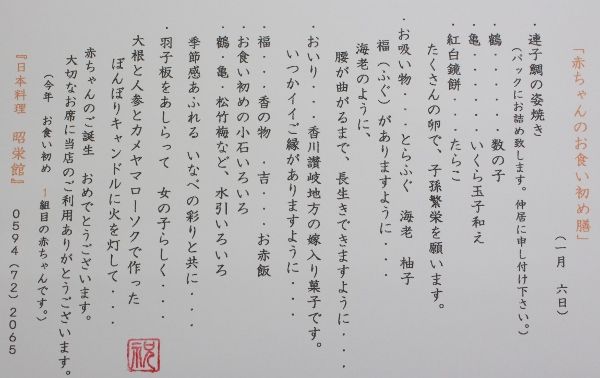 「赤ちゃんのお食い初め膳」
（一月　六日）
・連子鯛の姿焼き
（パックにお詰め致します。仲居に申し付け下さい。）
・鶴・・・・・数の子
・亀・・・・・いくら玉子和え
・紅白鏡餅・・・・たらこ
たくさんの卵で、子孫繁栄を願います。
・お吸い物・・・とらふぐ　海老　柚子
福（ふぐ）がありますように・・・
海老のように、
腰が曲がるまで、長生きできますように・・・・
・おいり・・・・香川讃岐地方の嫁入り菓子です。
いつかイイご縁がありますように・・・
福・・・香の物　・吉・・・お赤飯
・お食い初めの小石いろいろ
・鶴・亀・松竹梅など、水引いろいろ
季節感あふれる　いなべの彩りと共に・・・
・羽子板をあしらって　女の子らしく・・・
大根と人参とカメヤマローソクで作った
ぼんぼりキャンドルに火を灯して・・・・
赤ちゃんのご誕生　おめでとうございます。
大切なお席に当店のご利用ありがとうございます。
（今年　お食い初め　1組目の赤ちゃんです。）
『日本料理　昭栄館』　0594(72)2065
祝